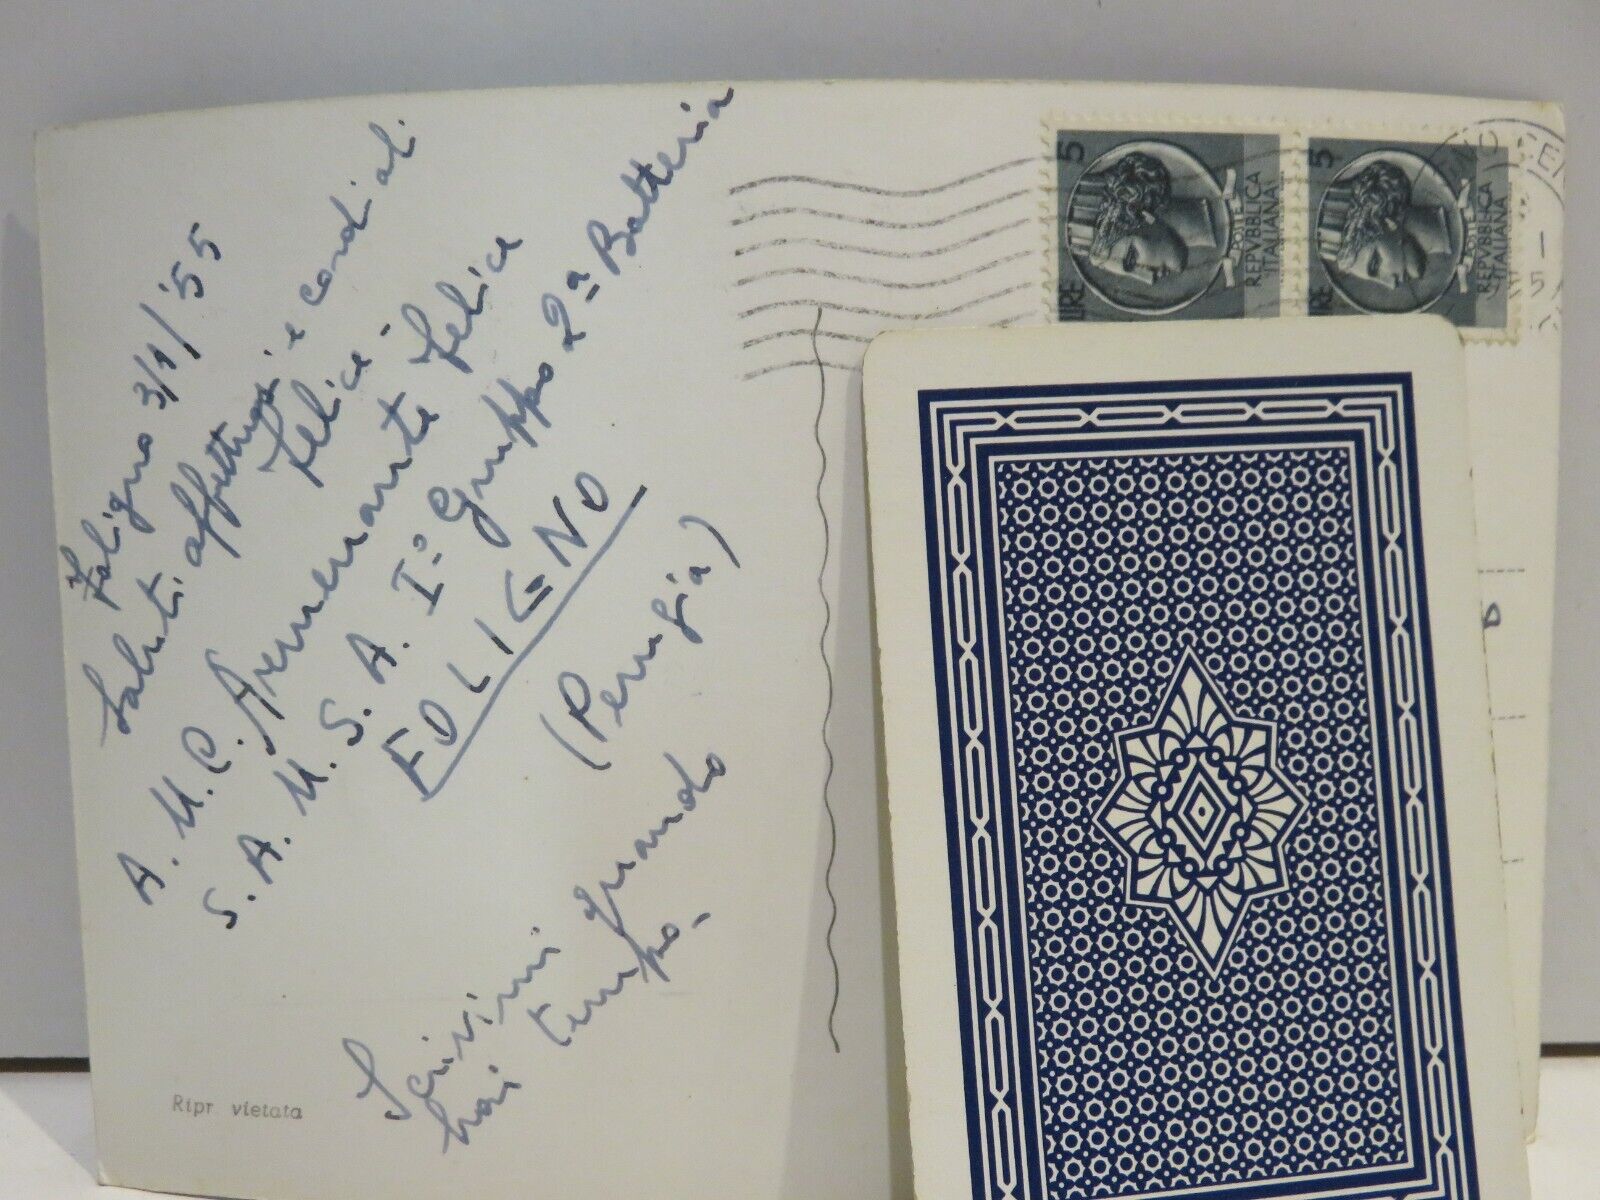 Foligno 3/1/'55
Saluti affettuosi e cordiali
Felice -
A. U. C. Armenante Felice
S. A. U. S. A. I° Gruppo 2ª Batteria
FOLIGNO
(Perugia)
Scrivimi quando
hai tempo.
Ripr. vietata
5
LIRE
POSTE
REPVBBLICA
ITALIANA
5
LIRE
POSTE
REPVBBLICA
ITALIANA